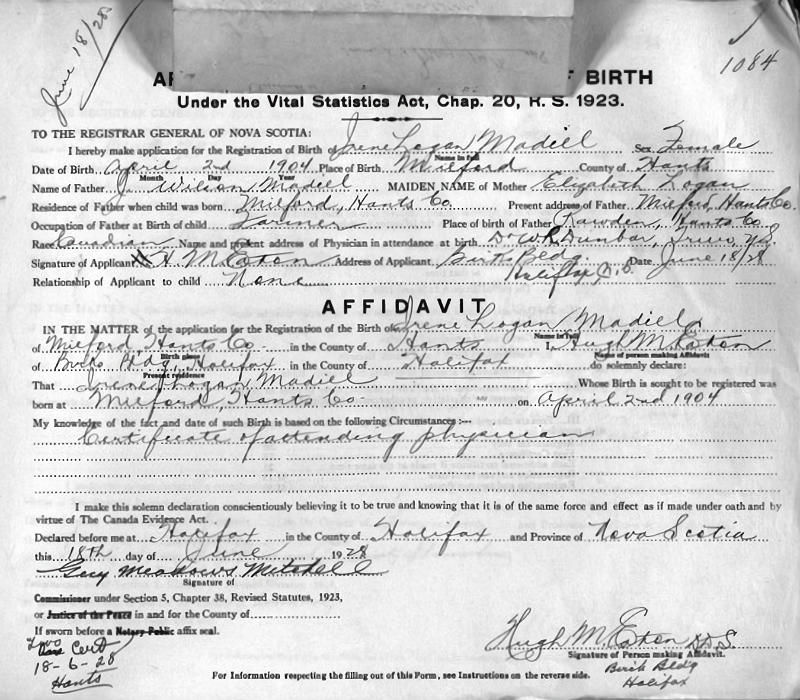 June 18/28
1084
AP F BIRTH
Under the Vital Statistics Act, Chap. 20, R. S. 1923.
TO THE REGISTRAR GENERAL OF NOVA SCOTIA:
I hereby make application for the Registration of Birth of Irene Logan Madill Sex Female
Name in full
Date of Birth April 2nd 1904 Place of Birth Milford County of Hants
Month Day Year
Name of Father J. Wilson Madill MAIDEN NAME of Mother Elizabeth Logan
Residence of Father when child was born Milford, Hants Co. Present address of Father Milford, Hants Co.
Occupation of Father at Birth of child Farmer Place of birth of Father Rawdon, Hants Co
Race Canadian Name and present address of Physician in attendance at birth Dr. W. R. Dunbar, Truro, N.S.
Signature of Applicant H. M. Eaton Address of Applicant Birks Bldg Date June 18/28
Halifax N.S.
Relationship of Applicant to child None
AFFIDAVIT
IN THE MATTER of the application for the Registration of the Birth of Irene Logan Madill
Name in full
of Milford Hants Co in the County of Hants I, Hugh M. Eaton
Birth place Name of person making Affidavit
of Birks Bldg, Halifax in the County of Halifax do solemnly declare:
Present residence
That Irene Logan Madill Whose Birth is sought to be registered was
born at Milford, Hants Co on April 2nd 1904
My knowledge of the fact and date of such Birth is based on the following Circumstances :—
Certificate of attending physician
I make this solemn declaration conscientiously believing it to be true and knowing that it is of the same force and effect as if made under oath and by
virtue of The Canada Evidence Act.
Declared before me at Halifax in the County of Halifax and Province of Nova Scotia
this 18th day of June 1928
Guy Meadows Mitchell
Signature of
Commissioner under Section 5, Chapter 38, Revised Statutes, 1923,
or Justice of the Peace in and for the County of
If sworn before a Notary Public affix seal.
Hugh M. Eaton D.D.S.
Signature of Person making Affidavit.
Birks Bldg
Halifax
Cert
18-6-28
Hants
For Information respecting the filling out of this Form, see Instructions on the reverse side.